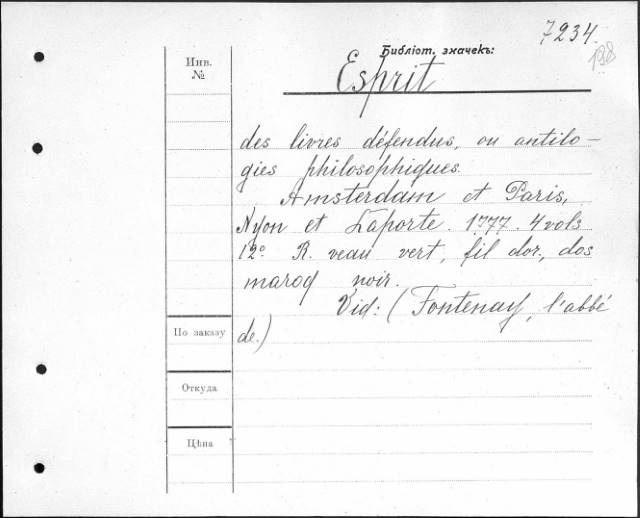 7234
198
Библіот. значекъ:
Инв.
№
Esprit
des livres défendus, ou antilo-
gies philosophiques.
Amsterdam et Paris,
Nyon et Laporte. 1777. 4 vols
12º. R. veau vert, fil dor., dos
maroq noir.
Vid: (Fontenay, l'abbé
de.)
По заказу
Откуда
Цѣна